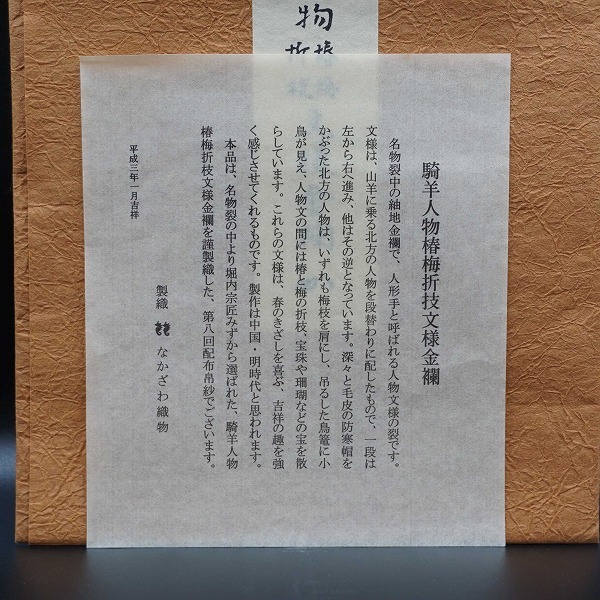 物
騎羊人物椿梅折技文様金襴
名物裂中の紬地金襴で、人形手と呼ばれる人物文様の裂です。
文様は、山羊に乗る北方の人物を段替わりに配したもので、一段は
左から右へ進み、他はその逆となっています。深々と毛皮の防寒帽を
かぶった北方の人物は、いずれも梅枝を肩にし、吊るした鳥籠に小
鳥が見え、人物文の間には椿と梅の折枝、宝珠や珊瑚などの宝を散
らしています。これらの文様は、春のきざしを喜ぶ、吉祥の趣を強
く感じさせてくれるものです。製作は中国・明時代と思われます。
本品は、名物裂の中より堀内宗匠みずから選ばれた、騎羊人物
椿梅折枝文様金襴を謹製織した、第八回配布帛紗でございます。
平成三年一月吉祥
製織 なかざわ織物